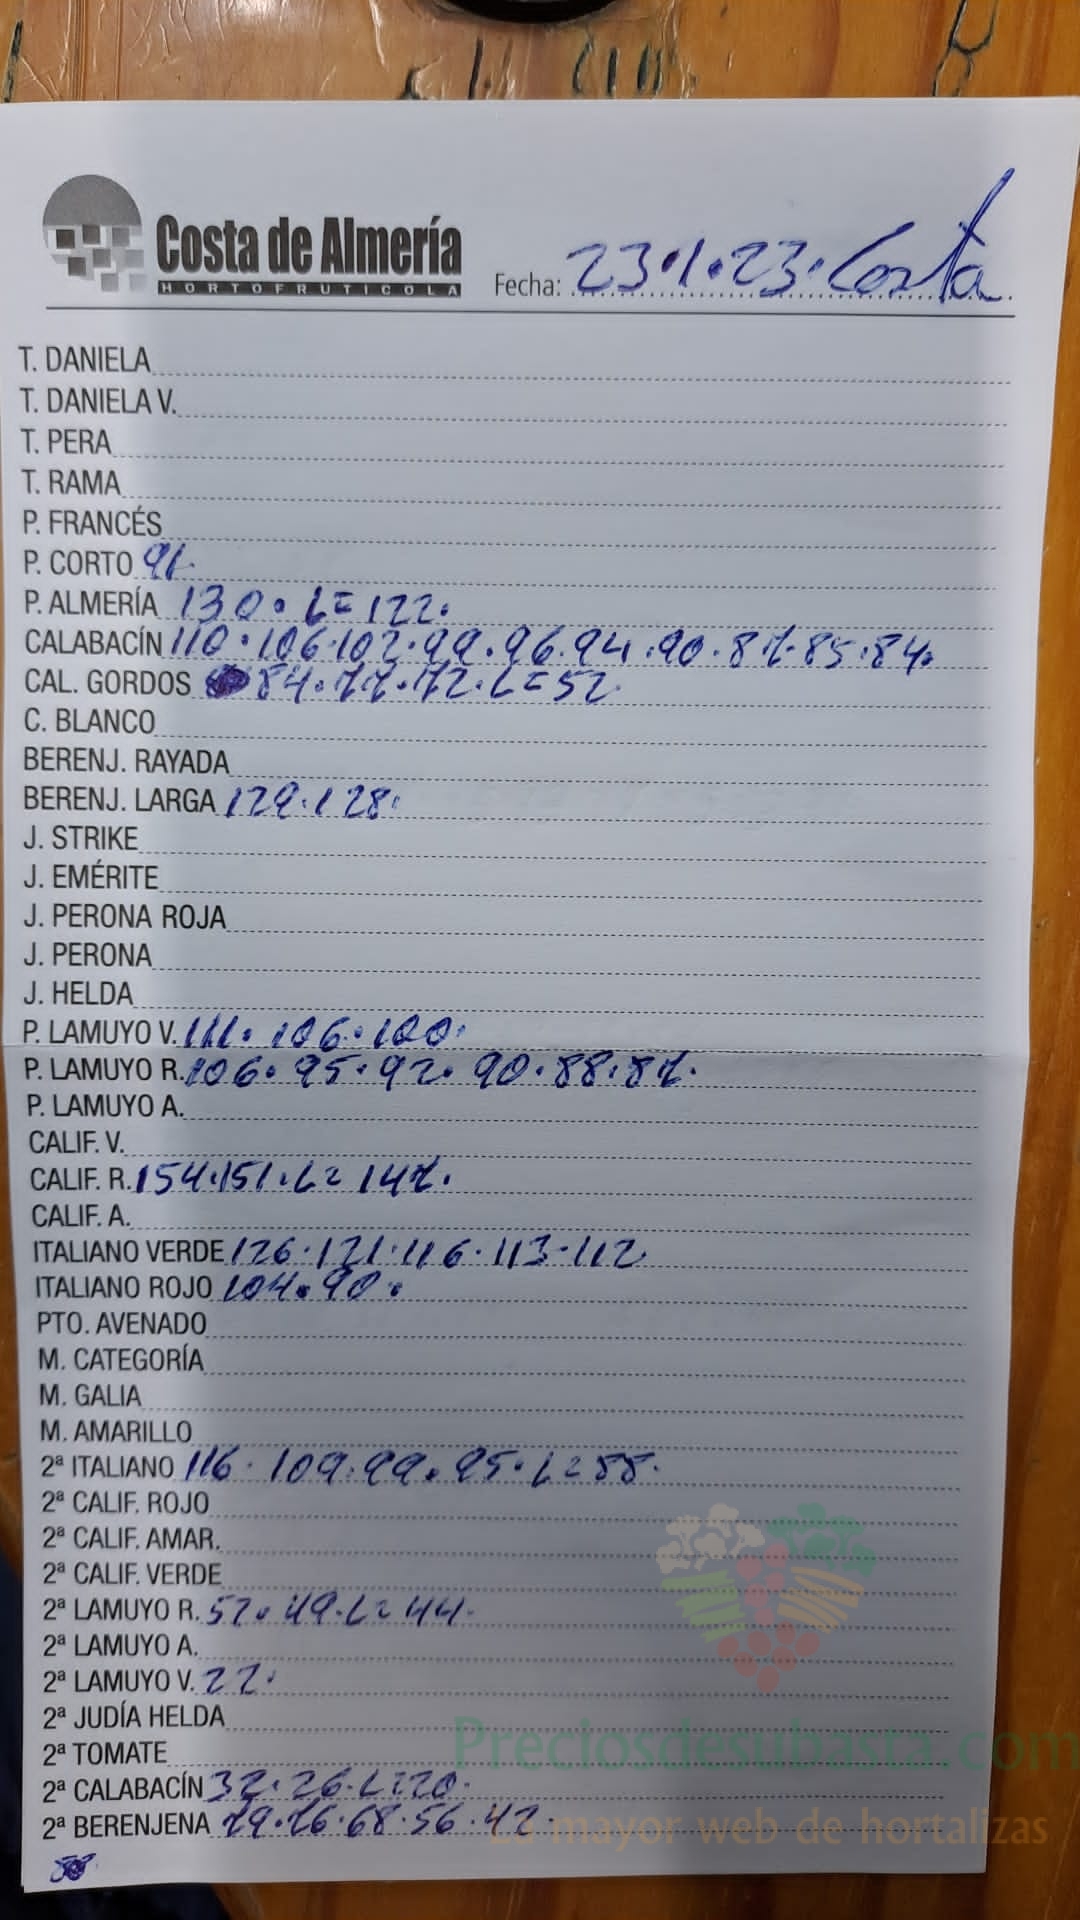 Costa de Almería
HORTOFRUTICOLA
Fecha: 23.1.23. Costa
T. DANIELA
T. DANIELA V.
T. PERA
T. RAMA
P. FRANCÉS
P. CORTO 91.
P. ALMERÍA 130. L= 122.
CALABACÍN 110. 106. 102. 99. 96. 94. 90. 87. 85. 84.
CAL. GORDOS 84. 77. 72. L= 52
C. BLANCO
BERENJ. RAYADA
BERENJ. LARGA 129. 128.
J. STRIKE
J. EMÉRITE
J. PERONA ROJA
J. PERONA
J. HELDA
P. LAMUYO V. 111. 106. 100.
P. LAMUYO R. 106. 95. 92. 90. 88. 87.
P. LAMUYO A.
CALIF. V.
CALIF. R. 154. 151. L= 147.
CALIF. A.
ITALIANO VERDE 126. 121. 116. 113. 112.
ITALIANO ROJO 104. 90.
PTO. AVENADO
M. CATEGORÍA
M. GALIA
M. AMARILLO
2ª ITALIANO 116. 109. 99. 95. L= 88.
2ª CALIF. ROJO
2ª CALIF. AMAR.
2ª CALIF. VERDE
2ª LAMUYO R. 57. 49. L= 44.
2ª LAMUYO A.
2ª LAMUYO V. 22.
2ª JUDÍA HELDA
2ª TOMATE
2ª CALABACÍN 32. 26. L= 20.
2ª BERENJENA 79. 76. 68. 56. 42.
Preciosdesubasta.com
La mayor web de hortalizas